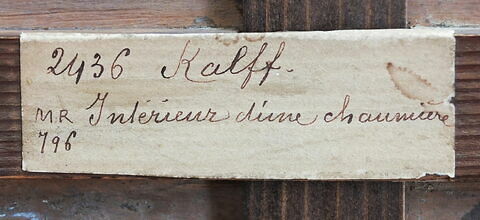 2436 Kalff.
MR Intérieur d'une chaumière
796